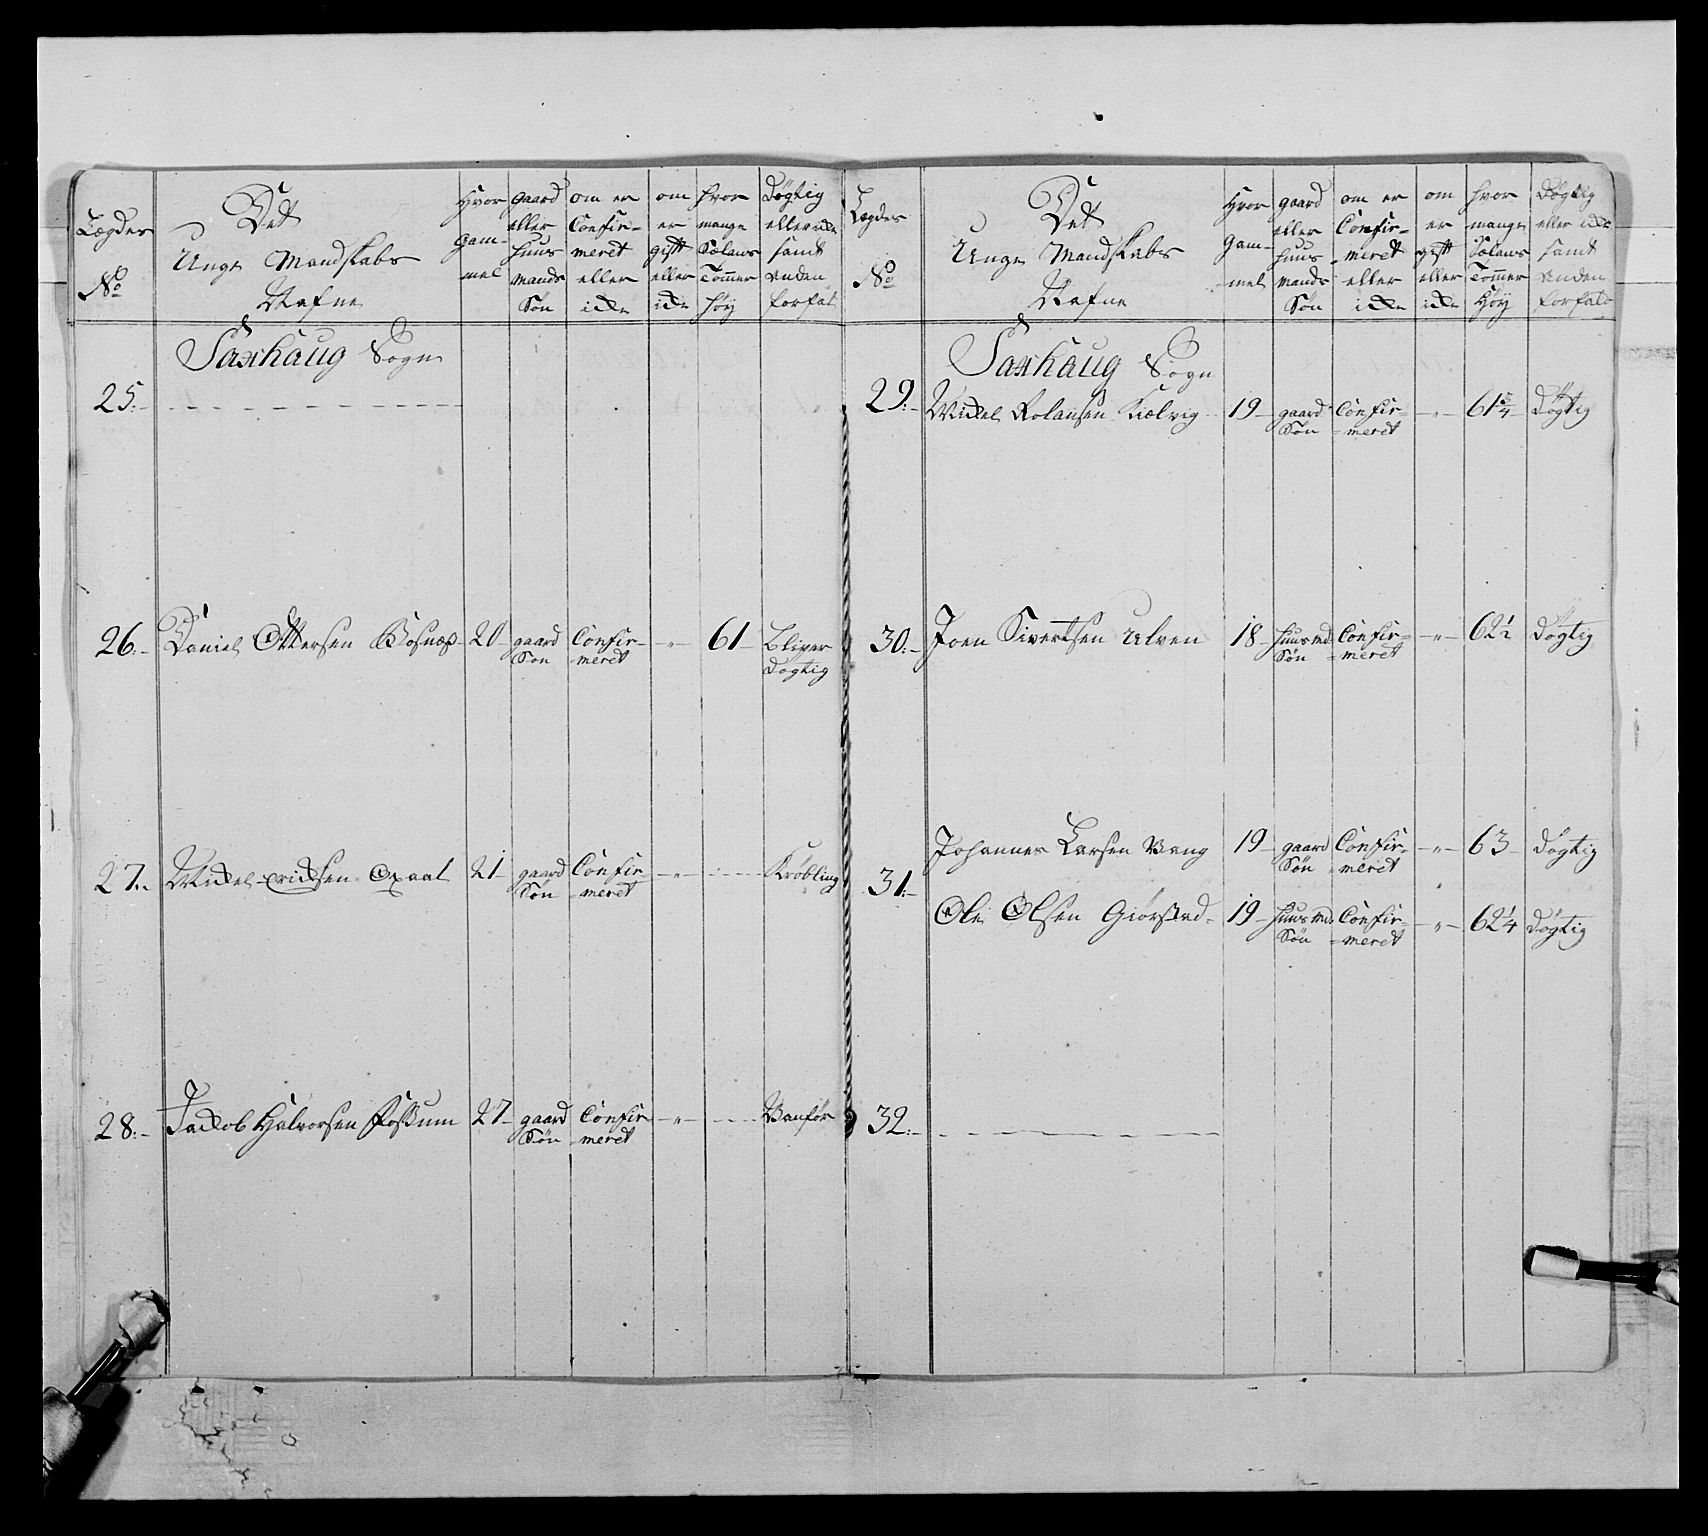 Lægdes No
Det Unge Mandskabs Nafne
Hvor gam- mel
gaard eller huus mands Søn
om er Confir- meret eller icke
om er gift eller icke
hvor mange Sælans Tommer høy
Døgtig eller icke samt anden forfal
Saxhaug Sogn
25.
26. Daniel Ottersen 20 gaard Søn Confir- meret - „ - 61 Bliver Døgtig
27. Mickel Ericksen 21 gaard Søn Confir- meret - „ - Krøbling
28. Jackob Halvorsen Fossum 27 gaard Søn Confir meret - „ - Vanfør
Lægdes No
Det Unge Mandskabs Nafne
Hvor gam- mel
gaard eller huus mands Søn
om er Confir- meret eller icke
om er gift eller icke
hvor mange Sælans Tommer Høy
Døgtig eller icke samt anden forfald
Saxhaug Sogn
29. Mickel Rolansen 19 gaard Søn Confir- meret - „ - 61 3/4 Døgtig
30. Joen Sivertsen Ulven 18 huusmd. Søn Confir- meret - „ - 62 1/2 Døgtig
31. Johannes Larsen Vang 19 gaard Søn Confir- meret - „ - 63 Døgtig
Ole Olsen 19 huusmd. Søn Confir- meret - „ - 62 1/4 Døgtig
32.